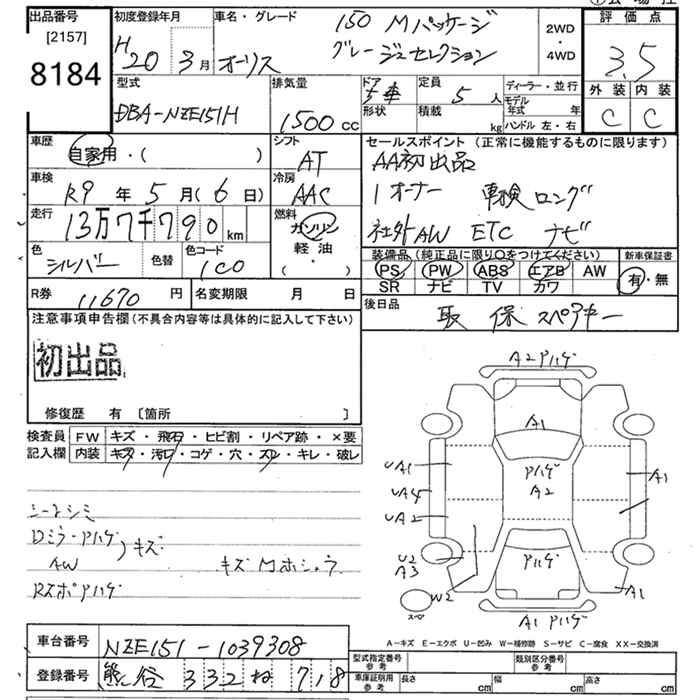 出品番号
[2157]
8184
初度登録年月
H20年3月
車名・グレード
オーリス
150 Mパッケージ
グレージュセレクション
2WD
・
4WD
評価点
3.5
外装 内装
C C
型式
DBA-NZE151H
排気量
1500cc
ドア 5
形状
定員 5人
積載 kg
ディーラー・並行
モデル年式 年
ハンドル 左・右
車歴
自家用・( )
シフト
AT
セールスポイント (正常に機能するものに限ります)
AA初出品
1オーナー 車検ロング
社外AW ETC ナビ
車検
R9年5月(6日)
冷房
AAC
走行
13万7千790km
燃料
ガソリン
軽油
( )
色
シルバー
色替
色コード
1C0
装備品(純正品に限り○をつけてください)
PS PW ABS エアB AW
SR ナビ TV カワ
新車保証書
有・無
R券 11670円
名変期限 月 日
後日品
取 保 スペアキー
注意事項申告欄(不具合内容等は具体的に記入して下さい)
初出品
修復歴 有 [箇所 ]
検査員記入欄
FW キズ・飛石・ヒビ割・リペア跡・×要
内装 キズ・汚レ・コゲ・穴・スレ・キレ・破レ
シートシミ
Dミラーアハゲ
AW
キズ
キズMホショウ
Rスポアハゲ
A2アハゲ
A1
アハゲ
A2
UA1
UA4
UA2
A1
U2
A3
アハゲ
W2
A1
スペア
A1アハゲ
A-キズ E-エクボ U-凹み W-補修跡 S-サビ C-腐食 XX-交換済
車台番号 NZE151-1039308
登録番号 熊谷 332 ね 718
型式指定番号
参考
類別区分番号
参考
車庫証明用
参考
長さ cm 幅 cm 高さ cm